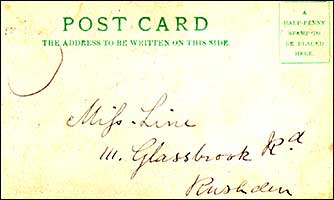 POST CARD
THE ADDRESS TO BE WRITTEN ON THIS SIDE
A
HALF-PENNY
STAMP TO
BE PLACED
HERE.
Miss. Line
111. Glassbrook Rd
Rushden